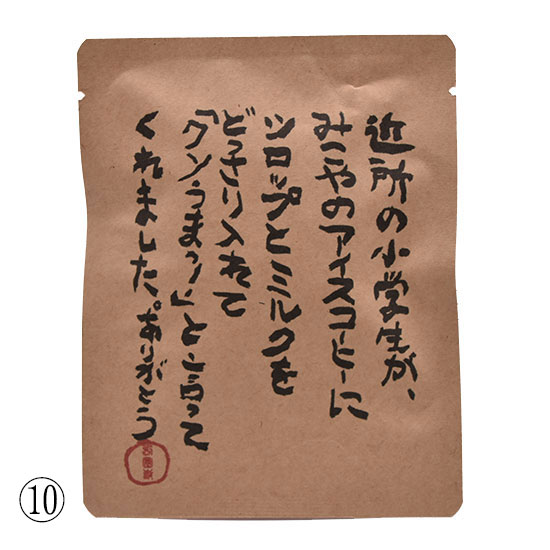 近所の小学生が、
みこやのアイスコーヒーに
シロップとミルクを
どっさり入れて
「クソうまっ!」と言って
くれました。ありがとう
⑩